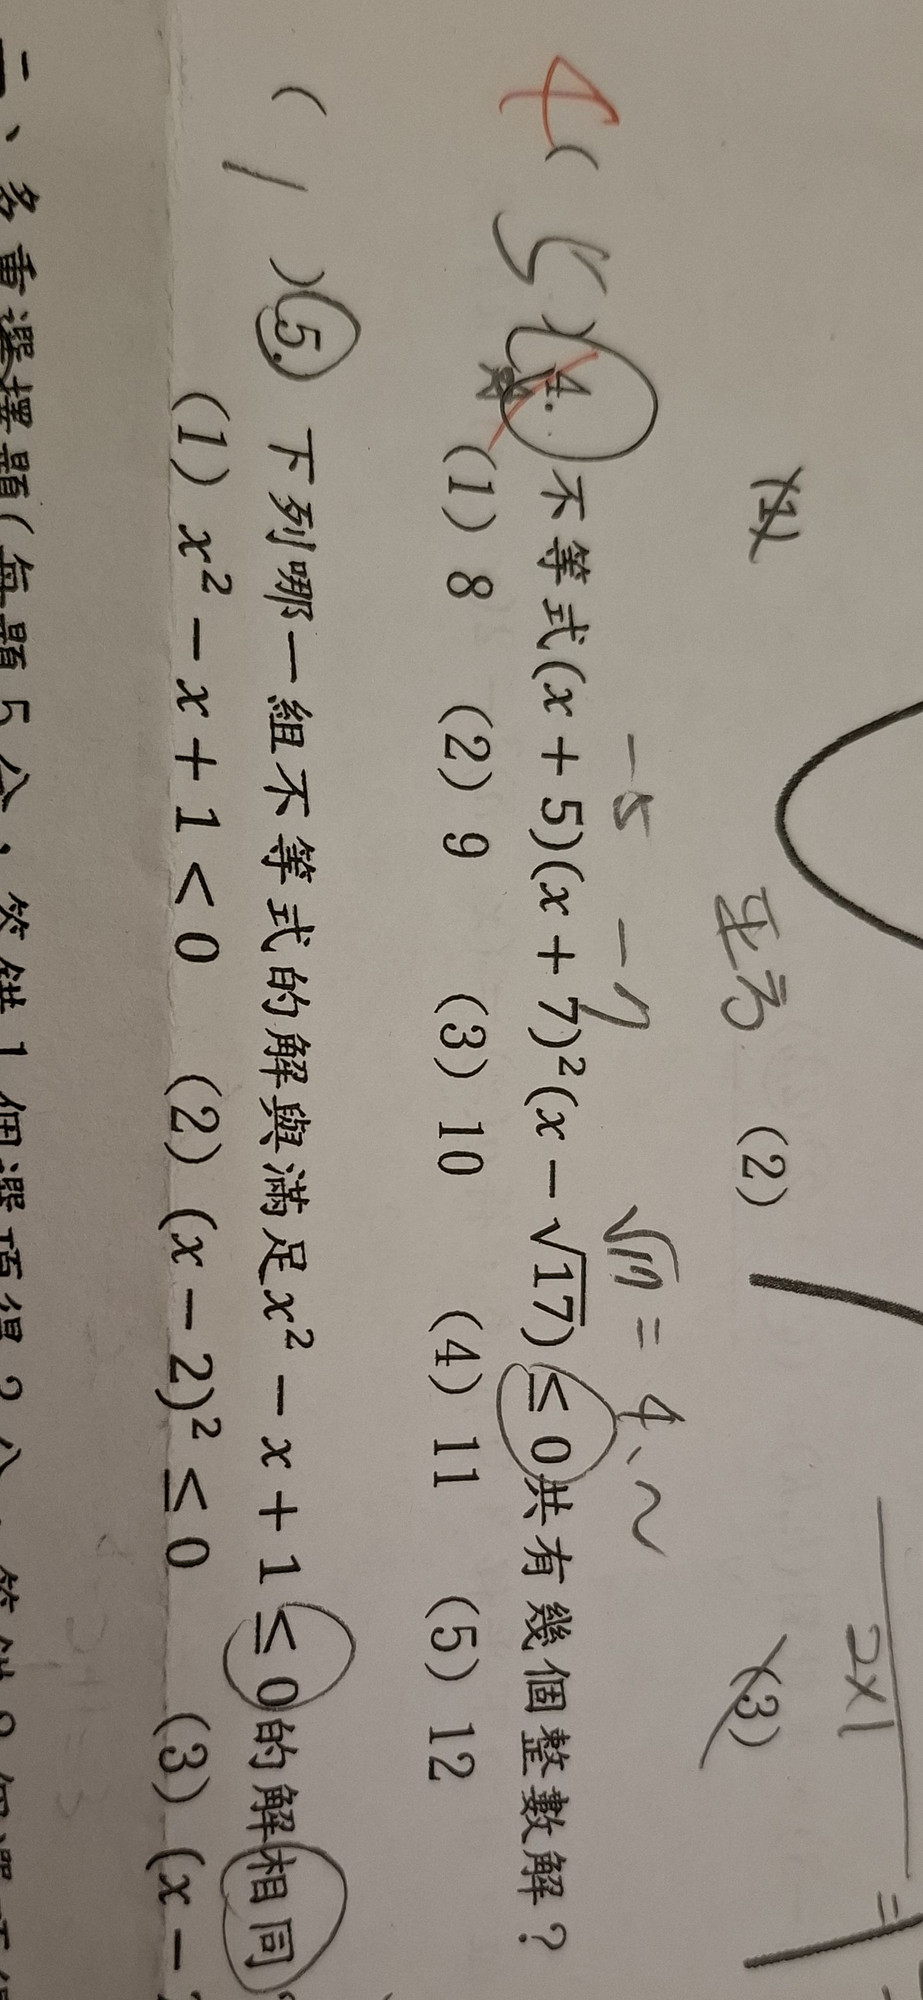 2×1 =
(1) (2) (3)
平方
-5 -7 √17 = 4、~
4 ( 5 ) 4. 不等式(x + 5)(x + 7)²(x − √17) ≤ 0共有幾個整數解？
(1) 8 (2) 9 (3) 10 (4) 11 (5) 12
( 1 ) 5. 下列哪一組不等式的解與滿足x² − x + 1 ≤ 0的解相同
(1) x² − x + 1 < 0 (2) (x − 2)² ≤ 0 (3) (x −
二、多重選擇題(每題5分，答錯1個選項得3分